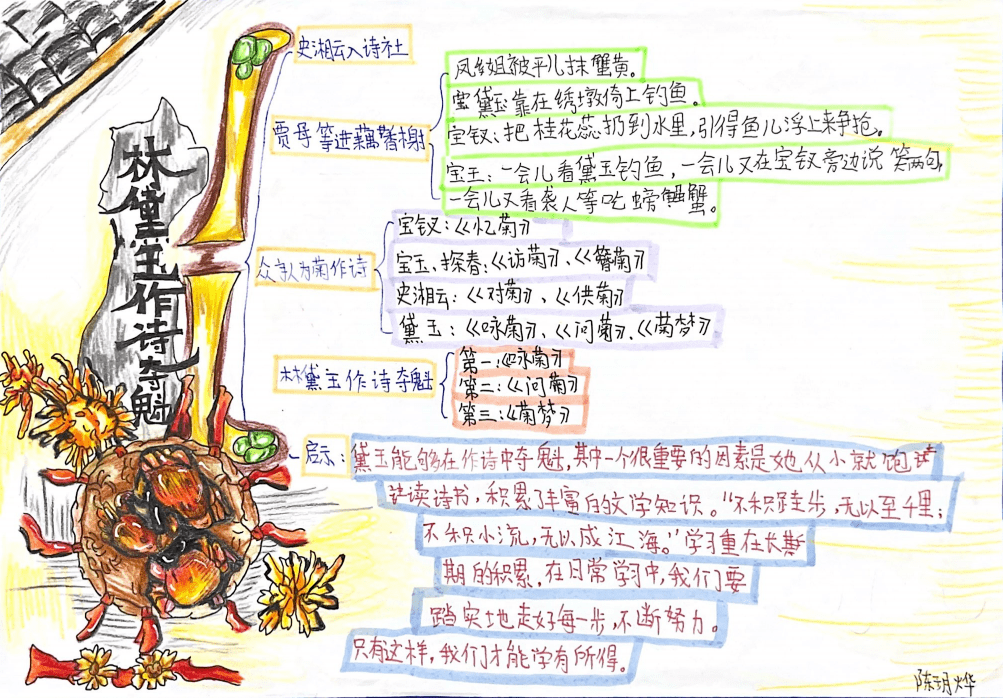 林黛玉作诗夺魁
史湘云入诗社
贾母等进藕香榭
凤姐被平儿抹蟹黄。
黛玉靠在绣墩倚上钓鱼。
宝钗:把桂花蕊扔到水里,引得鱼儿浮上来争抢。
宝玉:一会儿看黛玉钓鱼,一会儿又在宝钗旁边说笑两句,
一会儿又看袭人等吃螃蟹。
众人为菊作诗
宝钗:《忆菊》
宝玉、探春:《访菊》、《簪菊》
史湘云:《对菊》、《供菊》
黛玉:《咏菊》、《问菊》、《菊梦》
林黛玉作诗夺魁
第一:《咏菊》
第二:《问菊》
第三:《菊梦》
启示:黛玉能够在作诗中夺魁,其中一个很重要的因素是她从小就饱读
读诗书,积累了丰富的文学知识。“不积跬步,无以至千里;
不积小流,无以成江海。”学习重在长期
期的积累,在日常学习中,我们要
踏实地走好每一步,不断努力。
只有这样,我们才能学有所得。
陈玥烨